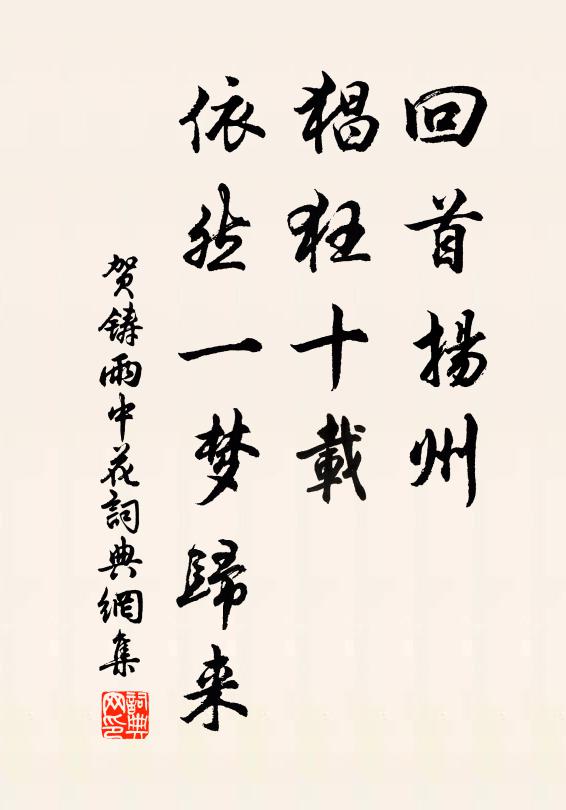 回首揚州
猖狂十載
依然一梦歸来
贺鑄雨中花詞典網集
詞典网印